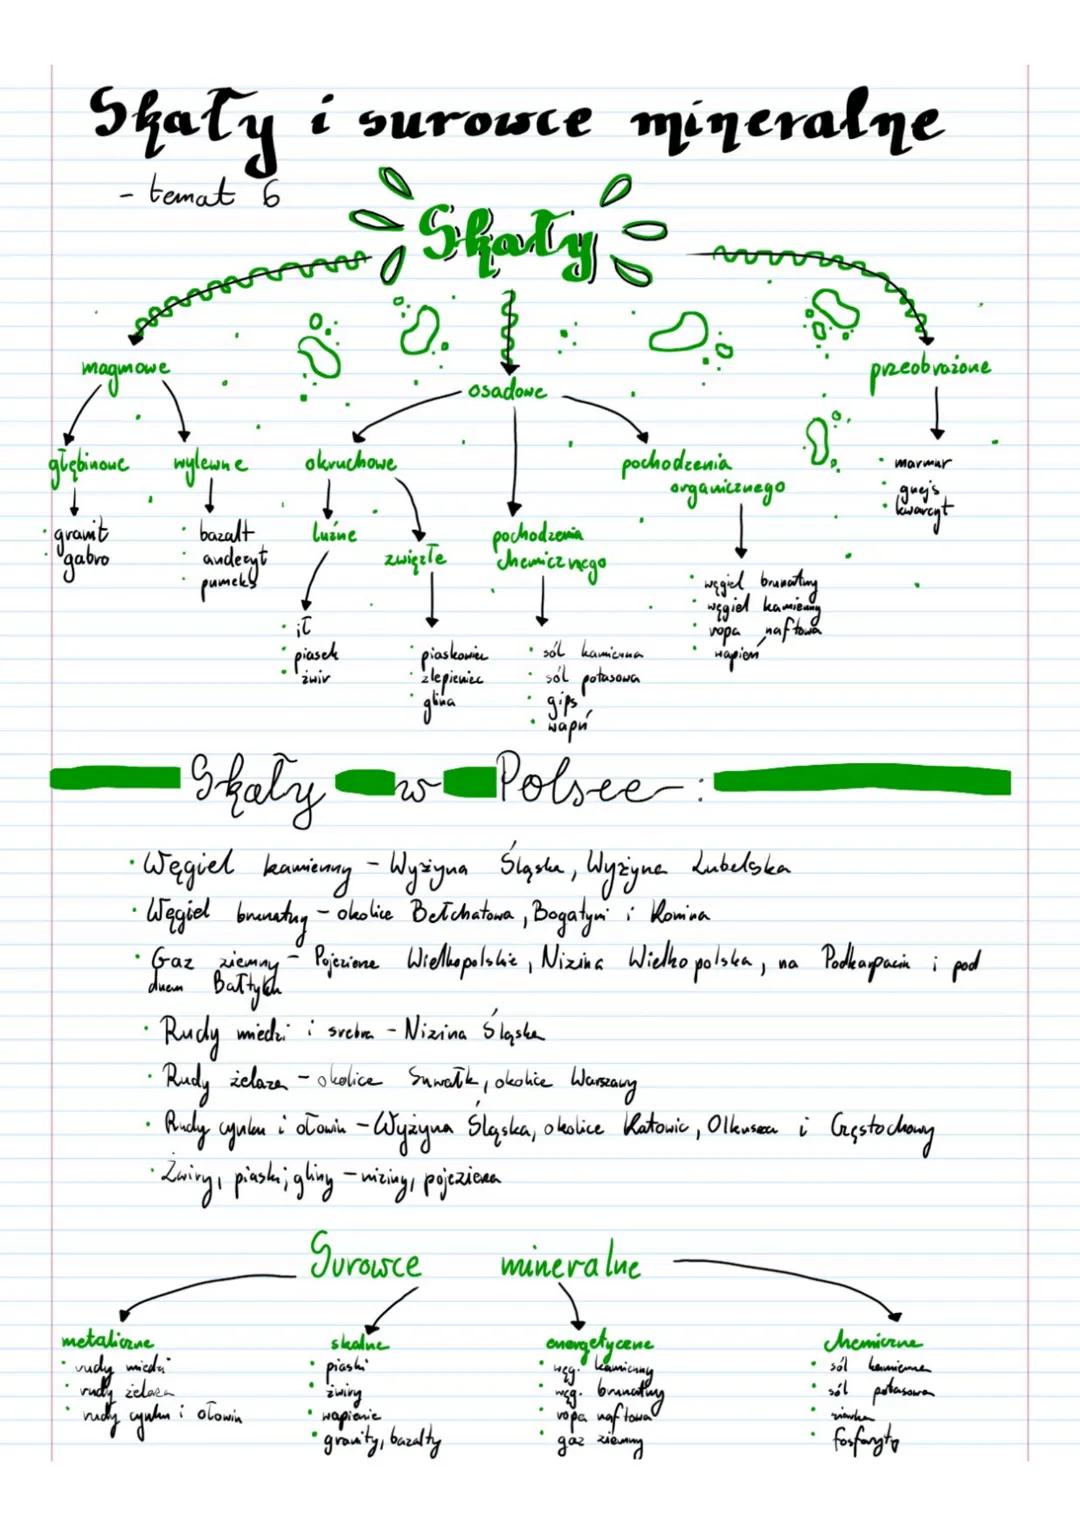 Skały i surowce mineralne
- temat 6
Skały
magmowe
osadowe
przeobrażone
głębinowe
wylewne
okruchowe
pochodzenia
organicznego
• marmur
• gnejs
• kwarcyt
• granit
• gabro
• bazalt
• andezyt
• pumeks
luźne
zwięzłe
pochodzenia
chemicznego
• węgiel brunatny
• węgiel kamienny
• ropa naftowa
• wapień
• ił
• piasek
• żwir
• piaskowiec
• zlepieniec
• glina
• sól kamienna
• sól potasowa
• gips
• wapń
Skały w Polsce:
• Węgiel kamienny - Wyżyna Śląska, Wyżyna Lubelska
• Węgiel brunatny - okolice Bełchatowa, Bogatyni i Konina
• Gaz ziemny - Pojezierze Wielkopolskie, Nizina Wielkopolska, na Podkarpaciu i pod
dnem Bałtyku
• Rudy miedzi i srebra - Nizina Śląska
• Rudy żelaza - okolice Suwałk, okolice Warszawy
• Rudy cynku i ołowiu - Wyżyna Śląska, okolice Katowic, Olkusza i Częstochowy
• Żwiry, piaski, gliny - niziny, pojezierza
Surowce mineralne
metaliczne
• rudy miedzi
• rudy żelaza
• rudy cynku i ołowiu
skalne
• piaski
• żwiry
• wapienie
• granity, bazalty
energetyczne
• węg. kamienny
• węg. brunatny
• ropa naftowa
• gaz ziemny
chemiczne
• sól kamienna
• sól potasowa
• siarka
• fosforyty